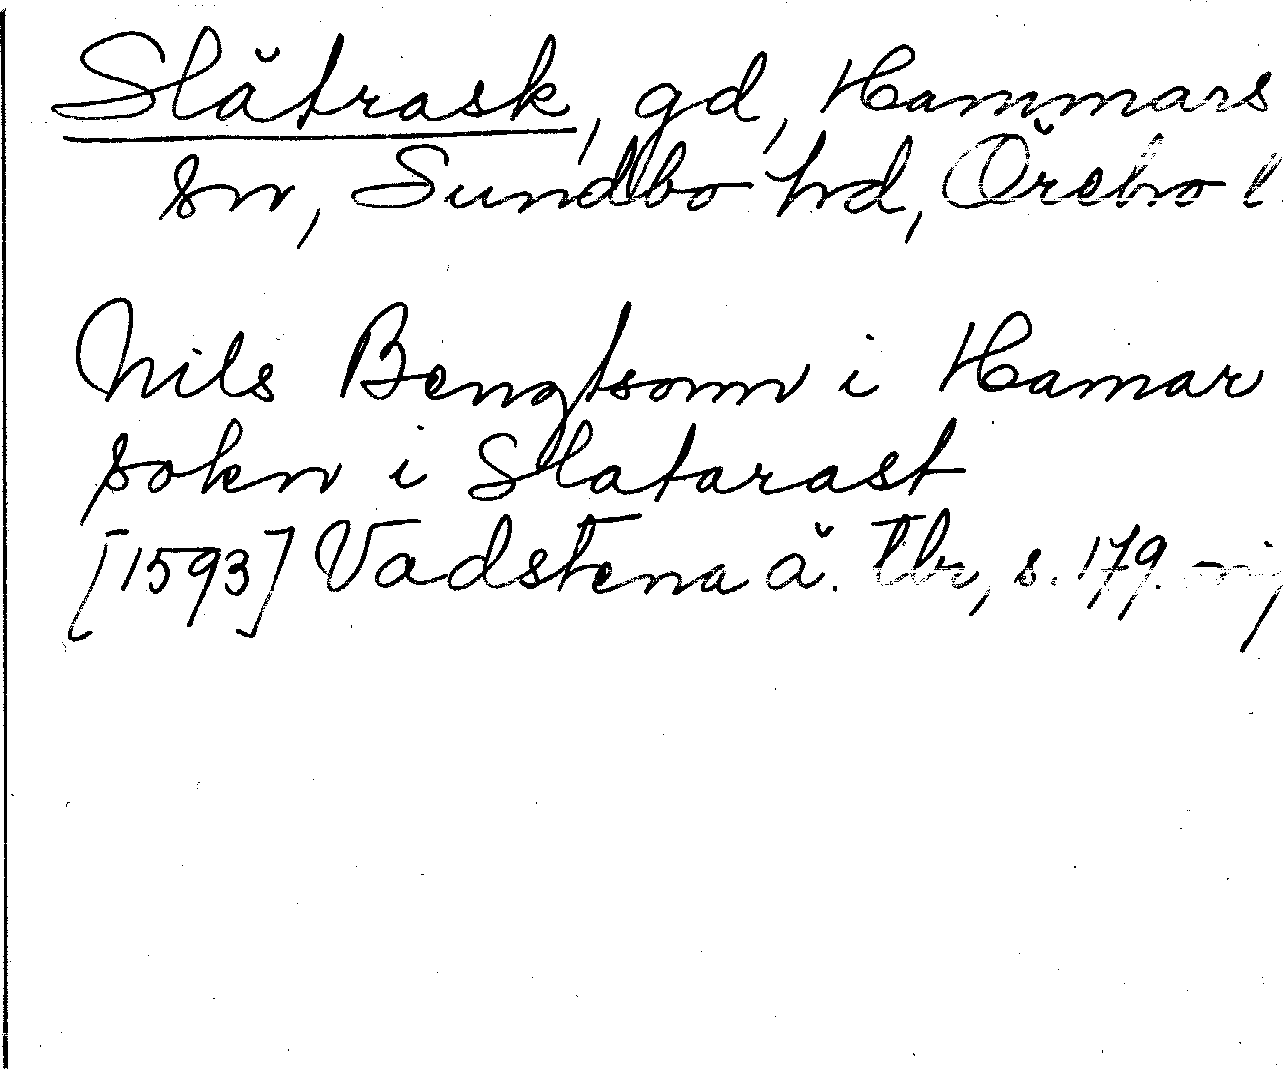 Slätrask, gd, Hammars
sn, Sundbo hd, Örebro l
Nils Bengtsonn i Hamar
sokn i Slatarast
[1593] Vadstena ä. tbr, s. 179.